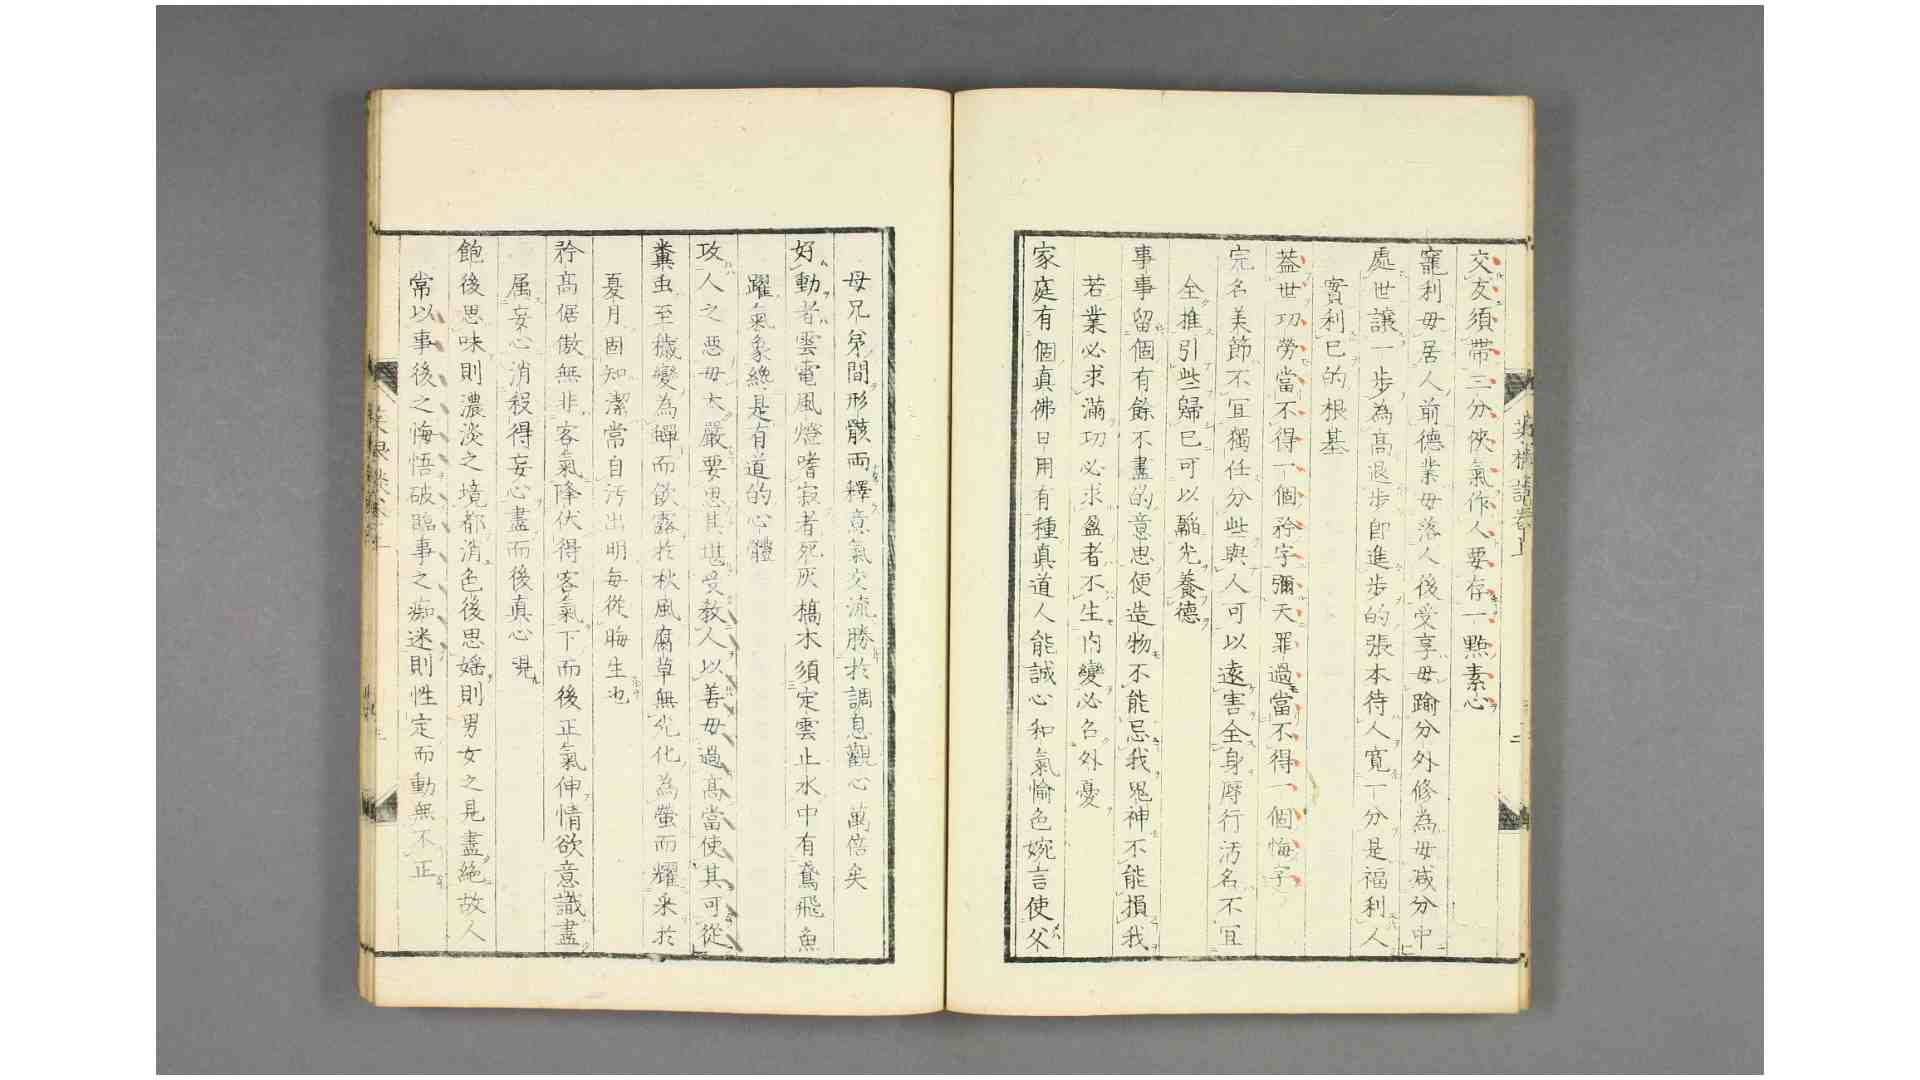 交友須帶三分俠氣作人要存一點素心
寵利毋居人前德業毋落人後受享毋踰分外修為毋減分中
處世讓一步為高退步卽進步的張本待人寬一分是福利人
實利己的根基
蓋世功勞當不得一個矜字彌天罪過當不得一個悔字
完名美節不宜獨任分些與人可以遠害全身辱行汚名不宜
全推引些歸己可以韜光養德
事事留個有餘不盡的意思便造物不能忌我鬼神不能損我
若業必求滿功必求盈者不生內變必召外憂
家庭有個真佛日用有種真道人能誠心和氣愉色婉言使父
母兄弟間形骸両釋意氣交流勝於調息觀心萬倍矣
好動者雲電風燈嗜寂者死灰槁木須定雲止水中有鳶飛魚
躍氣象纔是有道的心體
攻人之惡毋太嚴要思其堪受教人以善毋過高當使其可從
糞虫至穢變為蟬而飲露於秋風腐草無光化為螢而耀采於
夏月固知潔常自汚出明每從晦生也
矜高倨傲無非客氣降伏得客氣下而後正氣伸情欲意識盡
属妄心消殺得妄心盡而後真心見
飽後思味則濃淡之境都消色後思婬則男女之見盡絕故人
常以事後之悔悟破臨事之痴迷則性定而動無不正